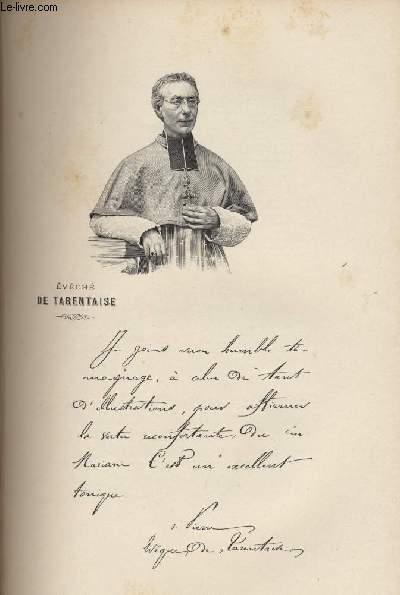 Le-livre.com
ÉVÊCHÉ
DE TARENTAISE
Je joins mon humble té-
moignage, à celui de tant
d'illustrations, pour affirmer
la vertu réconfortante du vin
Mariani C'est un excellent
tonique
Évêque de Tarentaise